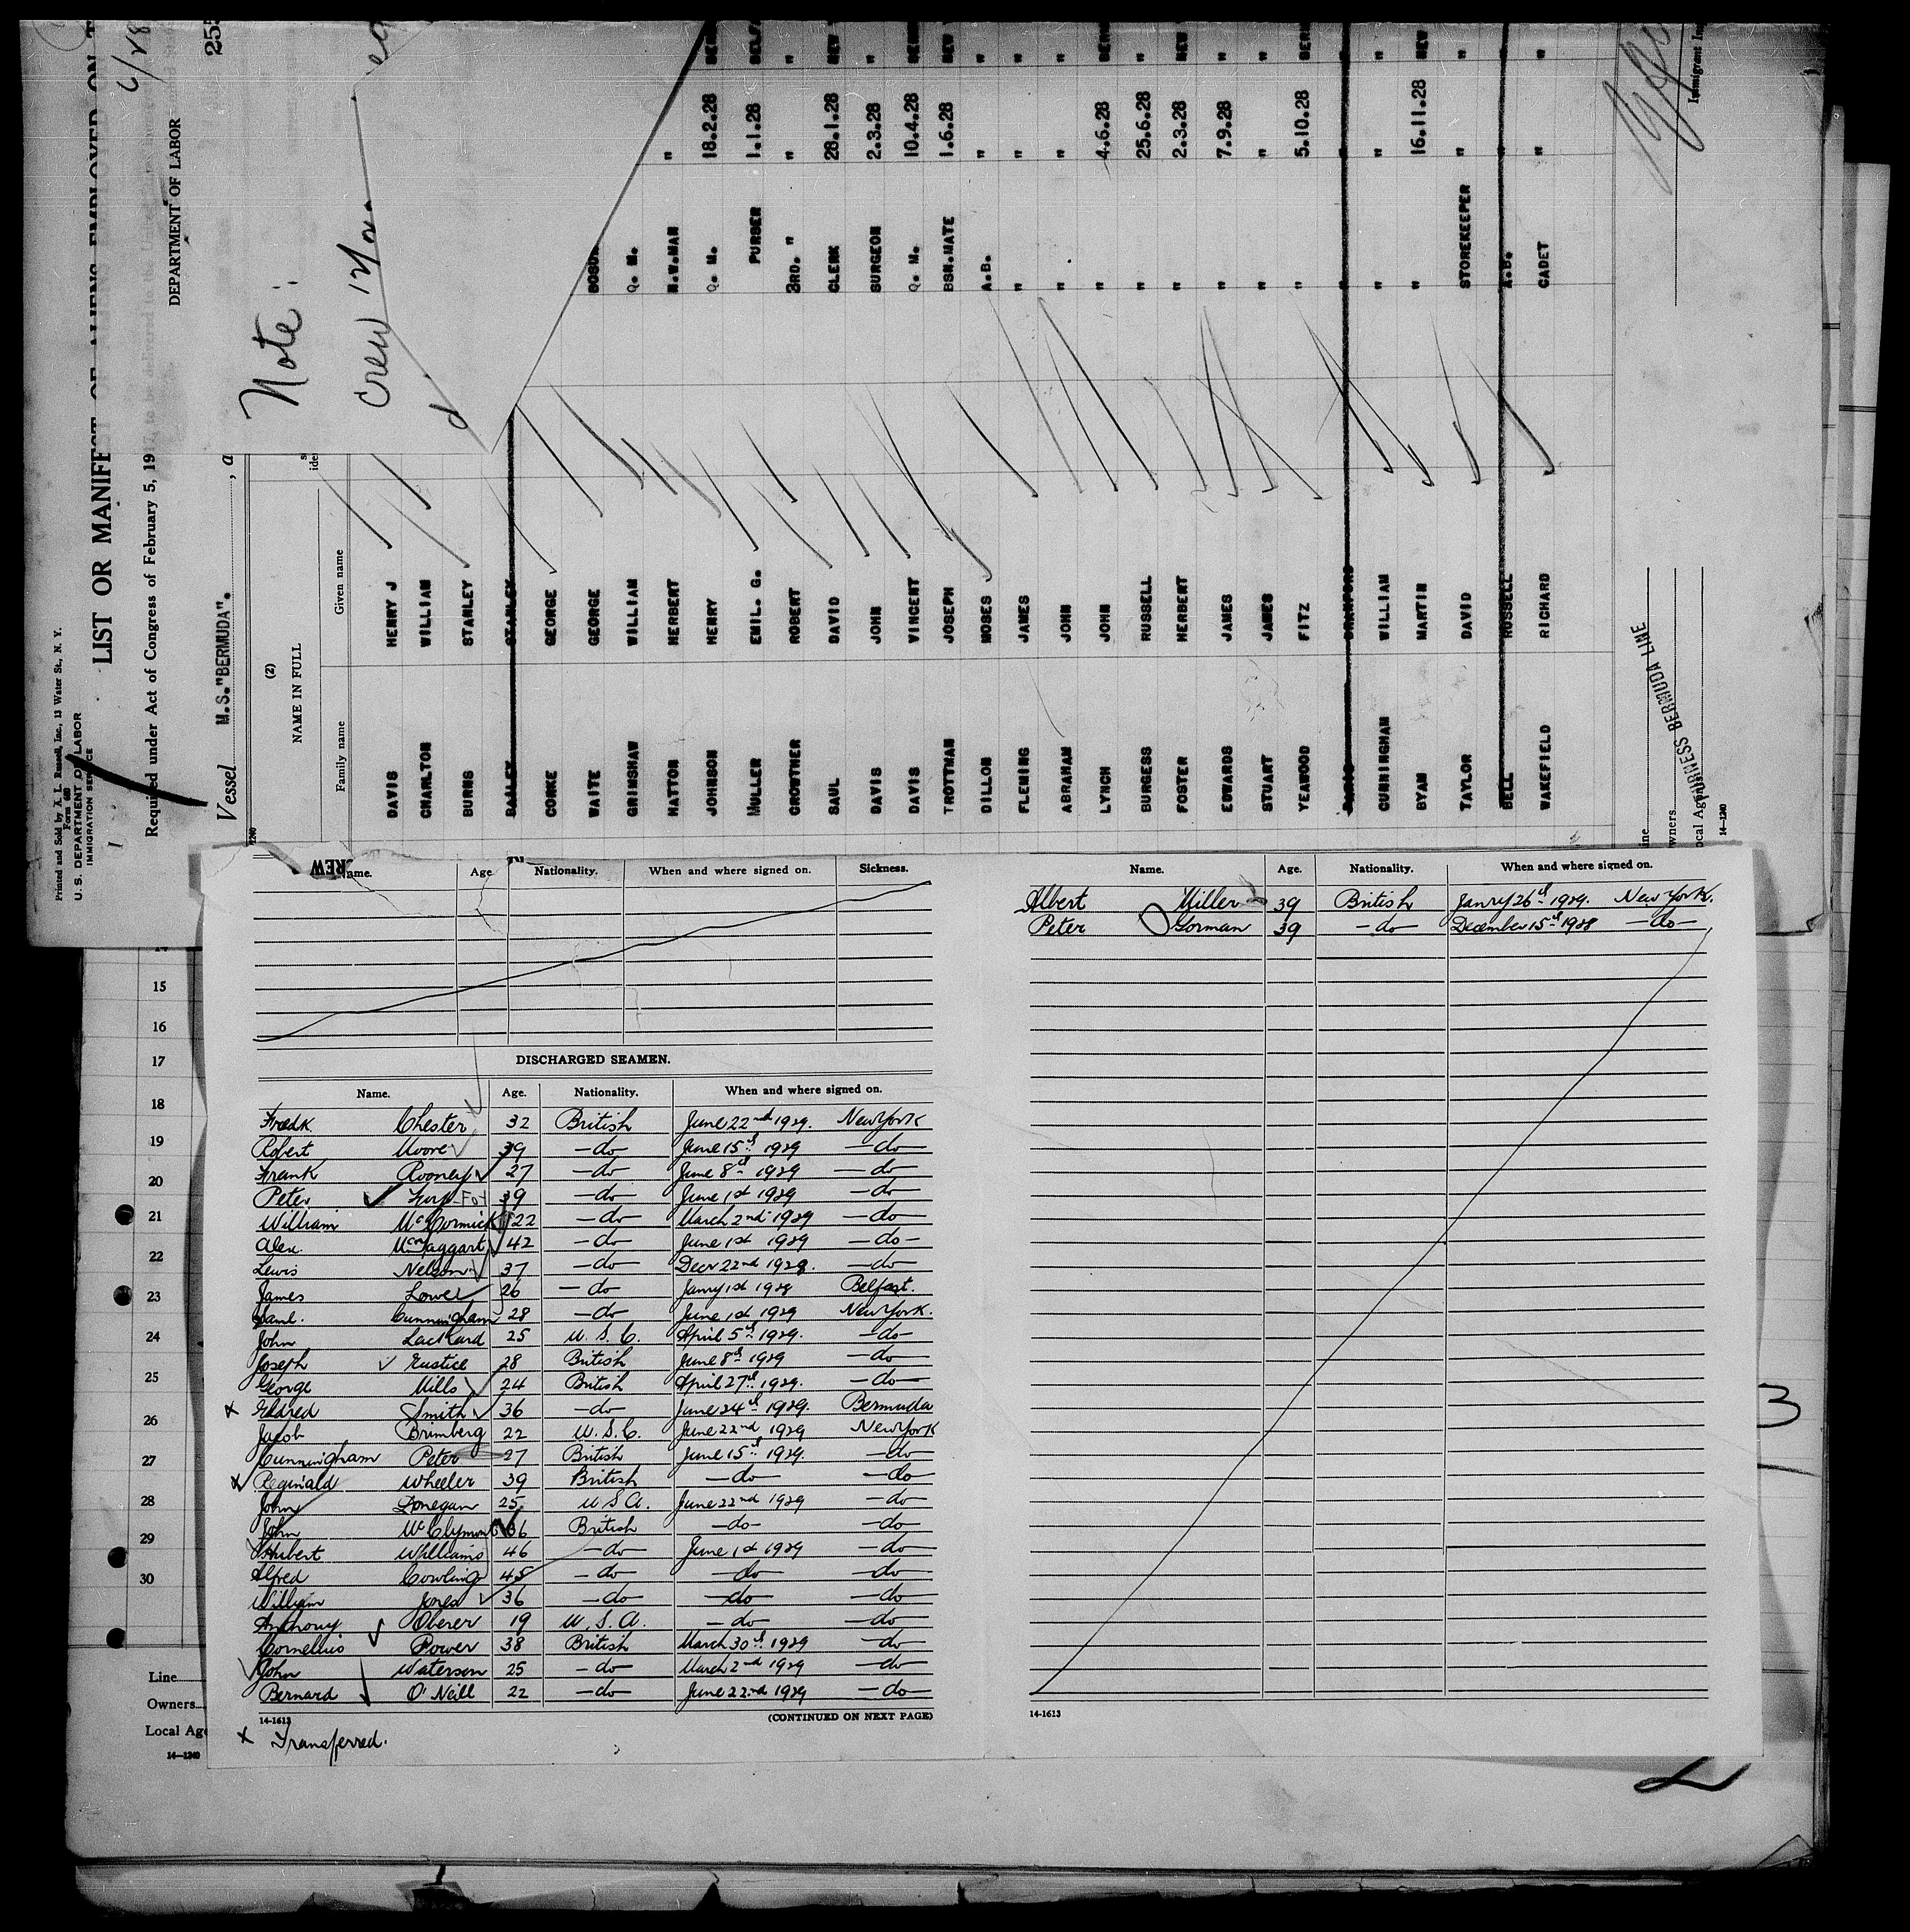 Printed and Sold by A. L. Russell, Inc., 13 Water St., N. Y.
Form 680
U. S. DEPARTMENT OF LABOR
IMMIGRATION SERVICE
LIST OR MANIFEST OF ALIENS EMPLOYED ON T
Required under Act of Congress of February 5, 1917, to be delivered to the United
DEPARTMENT OF LABOR
6/28
25
Vessel M.S."BERMUDA". , a
Note:
crew
(2)
NAME IN FULL
Family name Given name
DAVIS HENRY J
CHARLTON WILLIAM
BURNS STANLEY
BAILEY STANLEY
CORKE GEORGE
WAITE GEORGE BOSUN
GRIMSHAW WILLIAM Q. M.
HATTON HERBERT N.W.MAN "
JOHNSON HENRY Q. M. 18.2.28 BER
MULLER EMIL. G. PURSER 1.1.28 BELF
CROWTHER ROBERT 3RD. " " "
SAUL DAVID CLERK 28.1.28 NEW
DAVIS JOHN SURGEON 2.3.28 "
DAVIS VINCENT Q. M. 10.4.28 BER
TROTTMAN JOSEPH BSN.MATE 1.6.28 NEW
DILLON MOSES A.B. " "
FLEMING JAMES " " "
ABRAHAM JOHN " " "
LYNCH JOHN " 4.6.28 BER
BURGESS RUSSELL " 25.6.28 "
FOSTER HERBERT " 2.3.28 NEW
EDWARDS JAMES " 7.9.28 "
STUART JAMES " " "
YEARWOOD FITZ " 5.10.28 BER
CUNNINGHAM WILLIAM " " "
BYAM MARTIN " 16.11.28 NEW
TAYLOR DAVID STOREKEEPER " "
BELL RUSSELL A.B. " "
WAKEFIELD RICHARD CADET " "
Immigrant In
FURNESS BERMUDA LINE
14-1240
CREW
Name. Age. Nationality. When and where signed on. Sickness.
DISCHARGED SEAMEN.
Name. Age. Nationality. When and where signed on.
Fredk. Chester 32 British June 22nd 1929. New York
Robert Moore 39 -do- June 15th 1929 -do-
Frank Rooney 27 -do- June 8th 1929 -do-
Peter Foy 39 -do- June 1st 1929 -do-
William McCormick 22 -do- March 2nd 1929 -do-
Alex. McTaggart 42 -do- June 1st 1929 -do-
Lewis Nelson 37 -do- Decr 22nd 1928. -do-
James Lowe 26 -do- Janry 1st 1928 Belfast.
Saml. Cunningham 28 -do- June 1st 1929 New York.
John Lackard 25 U. S. C. April 5th 1929. -do-
Joseph Eustice 28 British June 8th 1929 -do-
George Mills 24 British April 27th 1929. -do-
x Eldred Smith 36 -do- June 24th 1929. Bermuda
Jacob Brimberg 22 U. S. C. June 22nd 1929 New York
Cunningham Peter 27 British June 15th 1929. -do-
x Reginald Wheeler 39 British -do- -do-
John Donegan 25 U S A. June 22nd 1929 -do-
John McClymont 36 British -do- -do-
Hubert Williams 46 -do- June 1st 1929 -do-
Alfred Cowling 45 -do- -do- -do-
William Jones 36 -do- -do- -do-
Anthony Oberer 19 U. S. A. -do- -do-
Cornelius Power 38 British March 30th 1929 -do-
John Waterson 25 -do- March 2nd 1929 -do-
Bernard O'Neill 22 -do- June 22nd 1929 -do-
14-1613 (CONTINUED ON NEXT PAGE)
x Transferred.
Name. Age. Nationality. When and where signed on.
Albert Miller 39 British Janry 26th 1929. New York.
Peter Gorman 39 -do- December 15th 1928 -do-
14-1613
15
16
17
18
19
20
21
22
23
24
25
26
27
28
29
30
Line
Owners
Local Age
14-1240
3